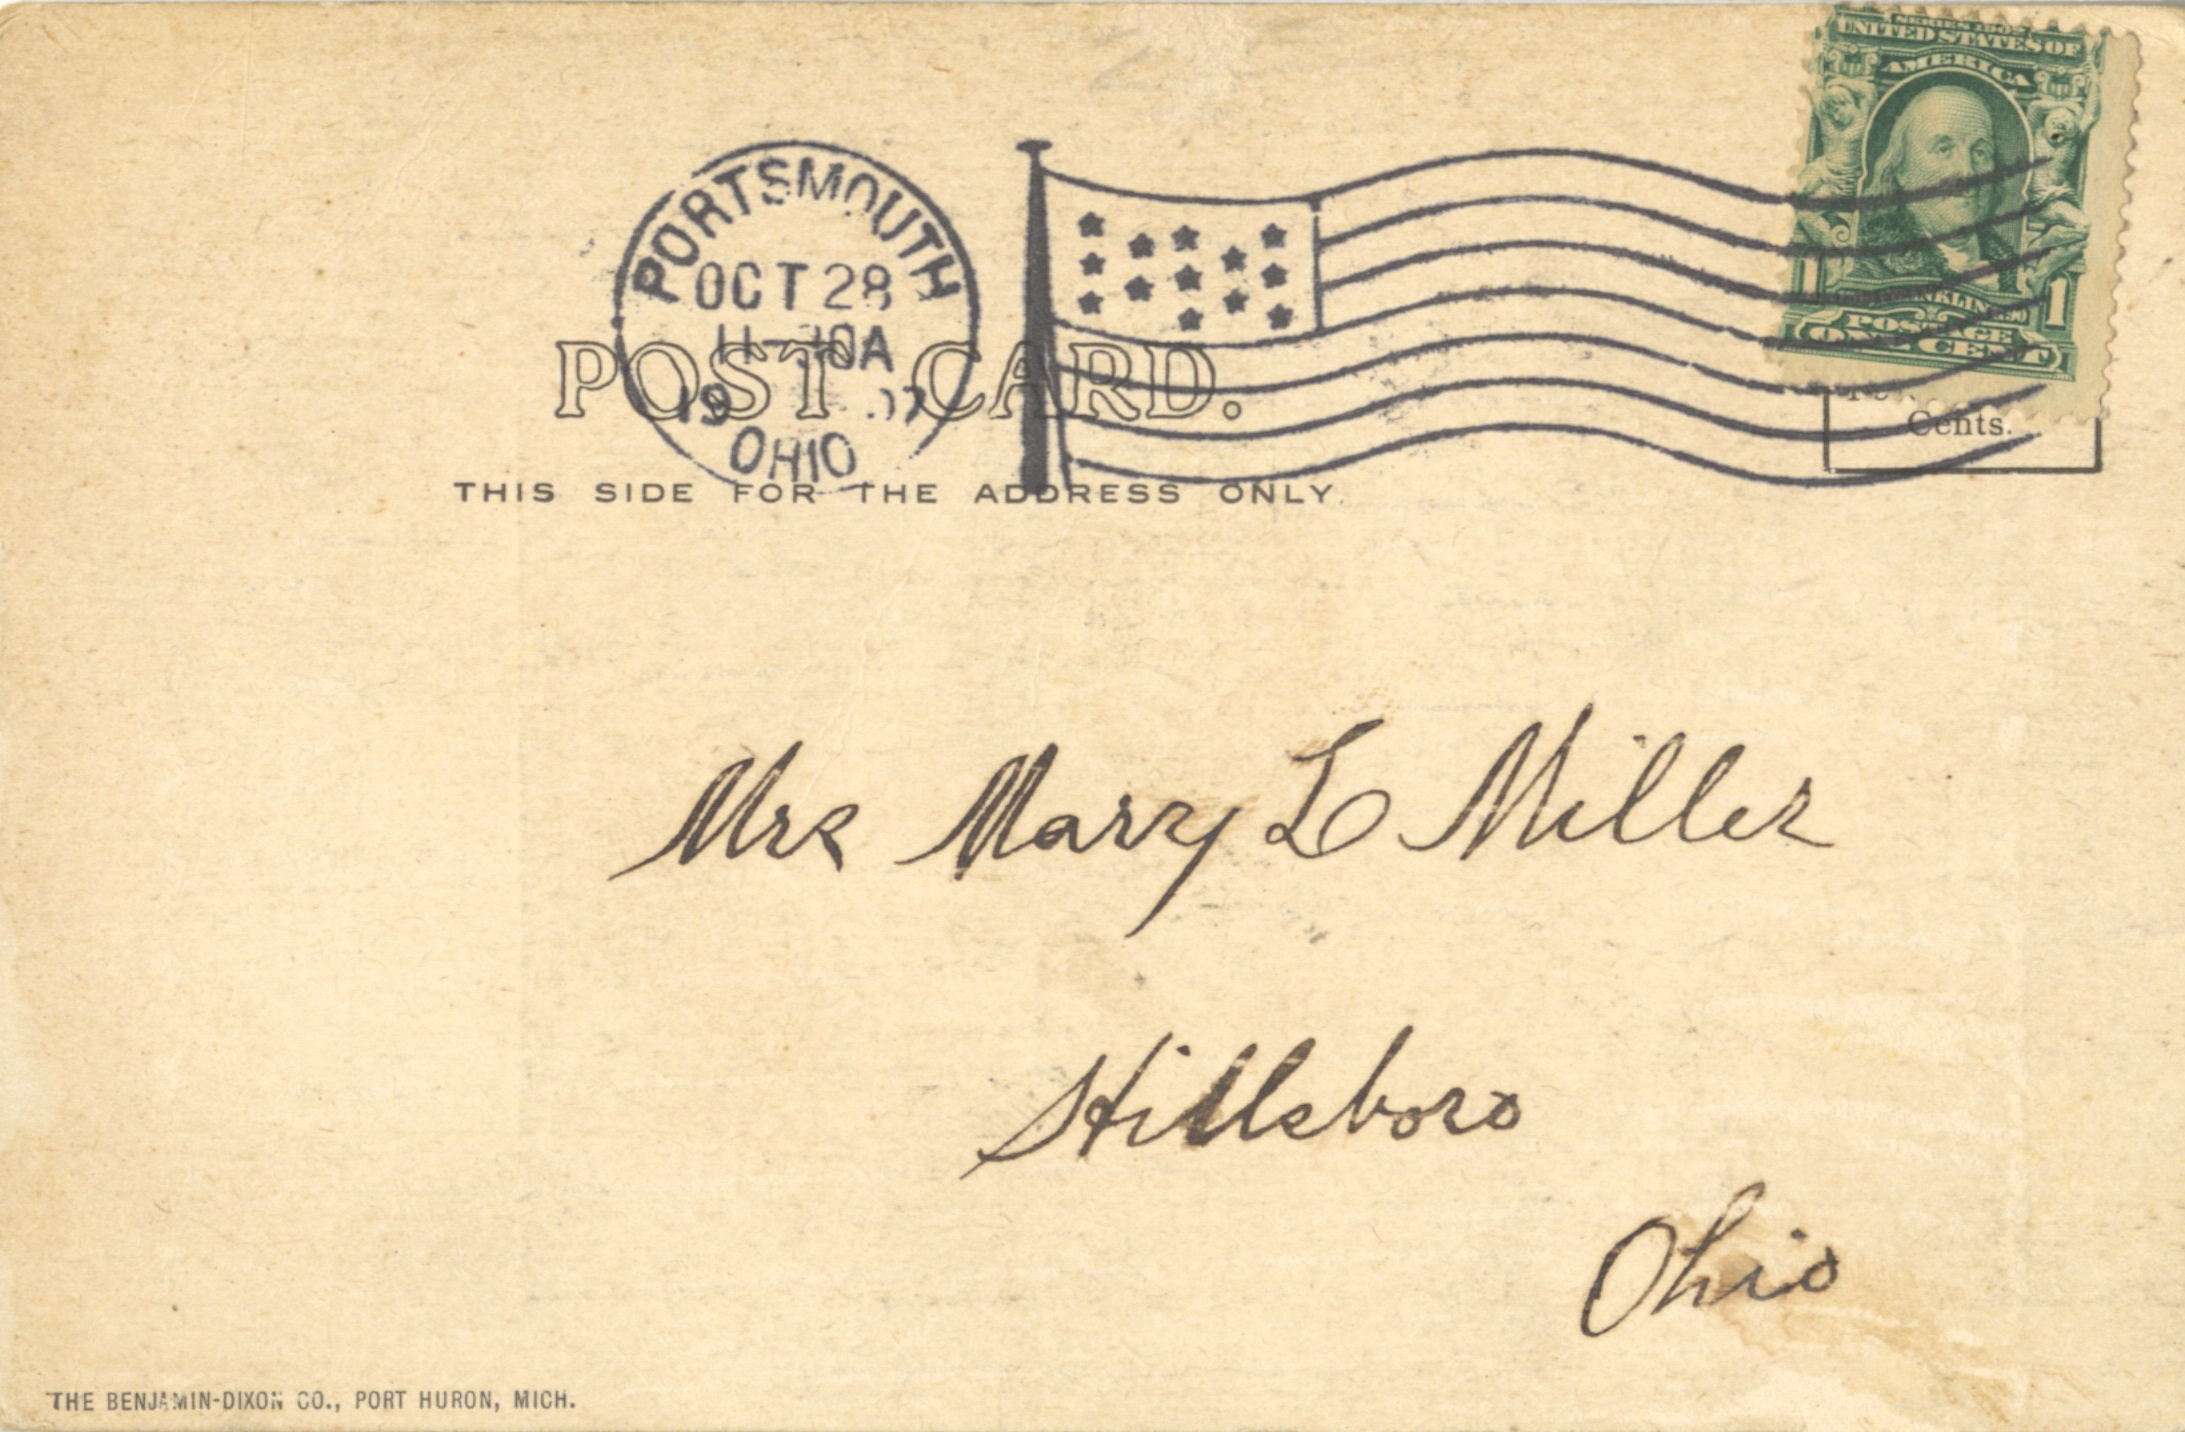 SERIES 1902
UNITED STATES OF
AMERICA
FRANKLIN
POSTAGE
1 ONE CENT 1
PORTSMOUTH
OCT 28
11-30A
1907
OHIO
POST CARD.
Cents.
THIS SIDE FOR THE ADDRESS ONLY.
Mrs Mary L Miller
Hillsboro
Ohio
THE BENJAMIN-DIXON CO., PORT HURON, MICH.